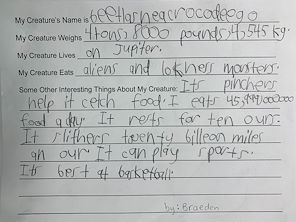 My Creature's Name is beetlasneacrocodeogo
My Creature Weighs 4 tons: 8000 pounds: 4,545 kg.
My Creature Lives on Jupiter.
My Creature Eats aliens and lokness monsters.
Some Other Interesting Things About My Creature: It's pinchers
help it cetch food. I eats 45,999,000,000
food a day. It rests for ten our.
It slithers twenty billeon miles
an our. It can play sports.
Its best at basketball.
by: Braeden